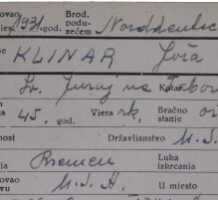 ovao 1931. god. Brod. podu- zećem Norddeutsc
KLINAR Joža
Sv. Juraj na Tabor
45. god. Vjera rk. Bračno stanje
nost Državljanstvo
Bremen Luka iskrcanja
ovao U.S.A. U mjesto